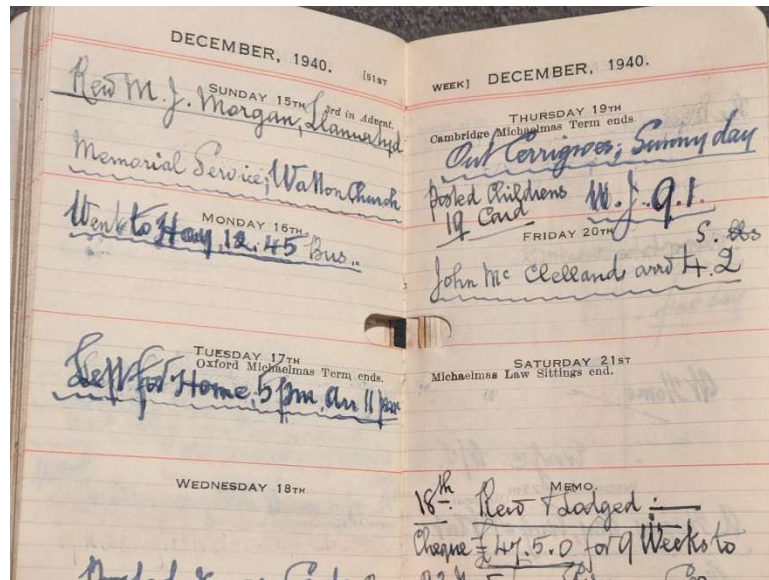 DECEMBER, 1940. [51ST
SUNDAY 15TH 3rd in Advent.
Rev M. J. Morgan,
Memorial Service, Watton Church
MONDAY 16TH
Went to Hay, 12.45 Bus..
TUESDAY 17TH
Oxford Michaelmas Term ends.
Left for Home, 5 pm, arr 11 pm
WEDNESDAY 18TH
WEEK] DECEMBER, 1940.
THURSDAY 19TH
Cambridge Michaelmas Term ends.
Out Cerrigroes; Sunny day
Posted Childrens
19 Card W. J. 91.
FRIDAY 20TH
John Mc Clellands arrd
SATURDAY 21ST
Michaelmas Law Sittings end.
MEMO.
18th Recd & Lodged :—
Cheque £47.5.0 for 9 Weeks to